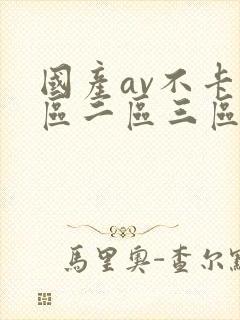 國產av不卡
區二區三區
馬里奧-查尔